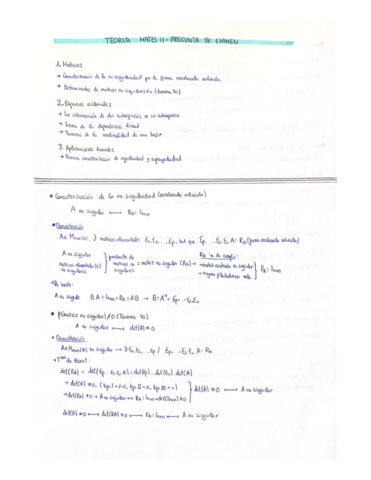 TEORIA MATES II - PREGUNTA DE EXAMEN
1. Matrices
→ Caracterización de la no singularidad por la forma escalonada reducida
→ Determinantes de matrices no singulares ≠ 0 (Teorema 70)
2. Espacios vectoriales
→ La intersección de dos subespacios es un subespacio
→ Lema de la dependencia lineal
→ Teorema de la cardinalidad de una base
3. Aplicaciones lineales
→ Primera caracterización de inyectividad y suprayectividad
• Caracterización de la no singularidad (escalonada reducida)
A no singular ⟷ RA = Inxn
• Demostración
A ∈ Mnxn(K), ∃ matrices elementales E1, E2, ... Ep, tal que Ep ... E2 E1 A = RA (forma escalonada reducida)
A no singular
matrices elementales(E) no singulares
producto de matrices no singulares = matriz no singular (RA)
RA = Inxn
• Por tanto:
A no singular BA = Inxn = RA = AB → B = A⁻¹ = Ep ... E2 E1
• (matriz no singular) ≠ 0 (Teorema 70)
A no singular ⟷ det(A) ≠ 0
• Demostración:
A ∈ Mnxn(K) no singular → ∃ E1, E2, ..., Ep / Ep ... E2 E1 A = RA
det(RA) = det(Ep ... E2 E1 A) = det(Ep) ... det(E1) det(A)
→ det(E) ≠ 0
→ det(RA) ≠ 0 → A no singular ⟷ RA = Inxn → det(Inxn) ≠ 0
det(A) ≠ 0 ⟷ A no singular
det(A) ≠ 0 ⟷ det(RA) ≠ 0 ⟷ RA = Inxn ⟷ A no singular